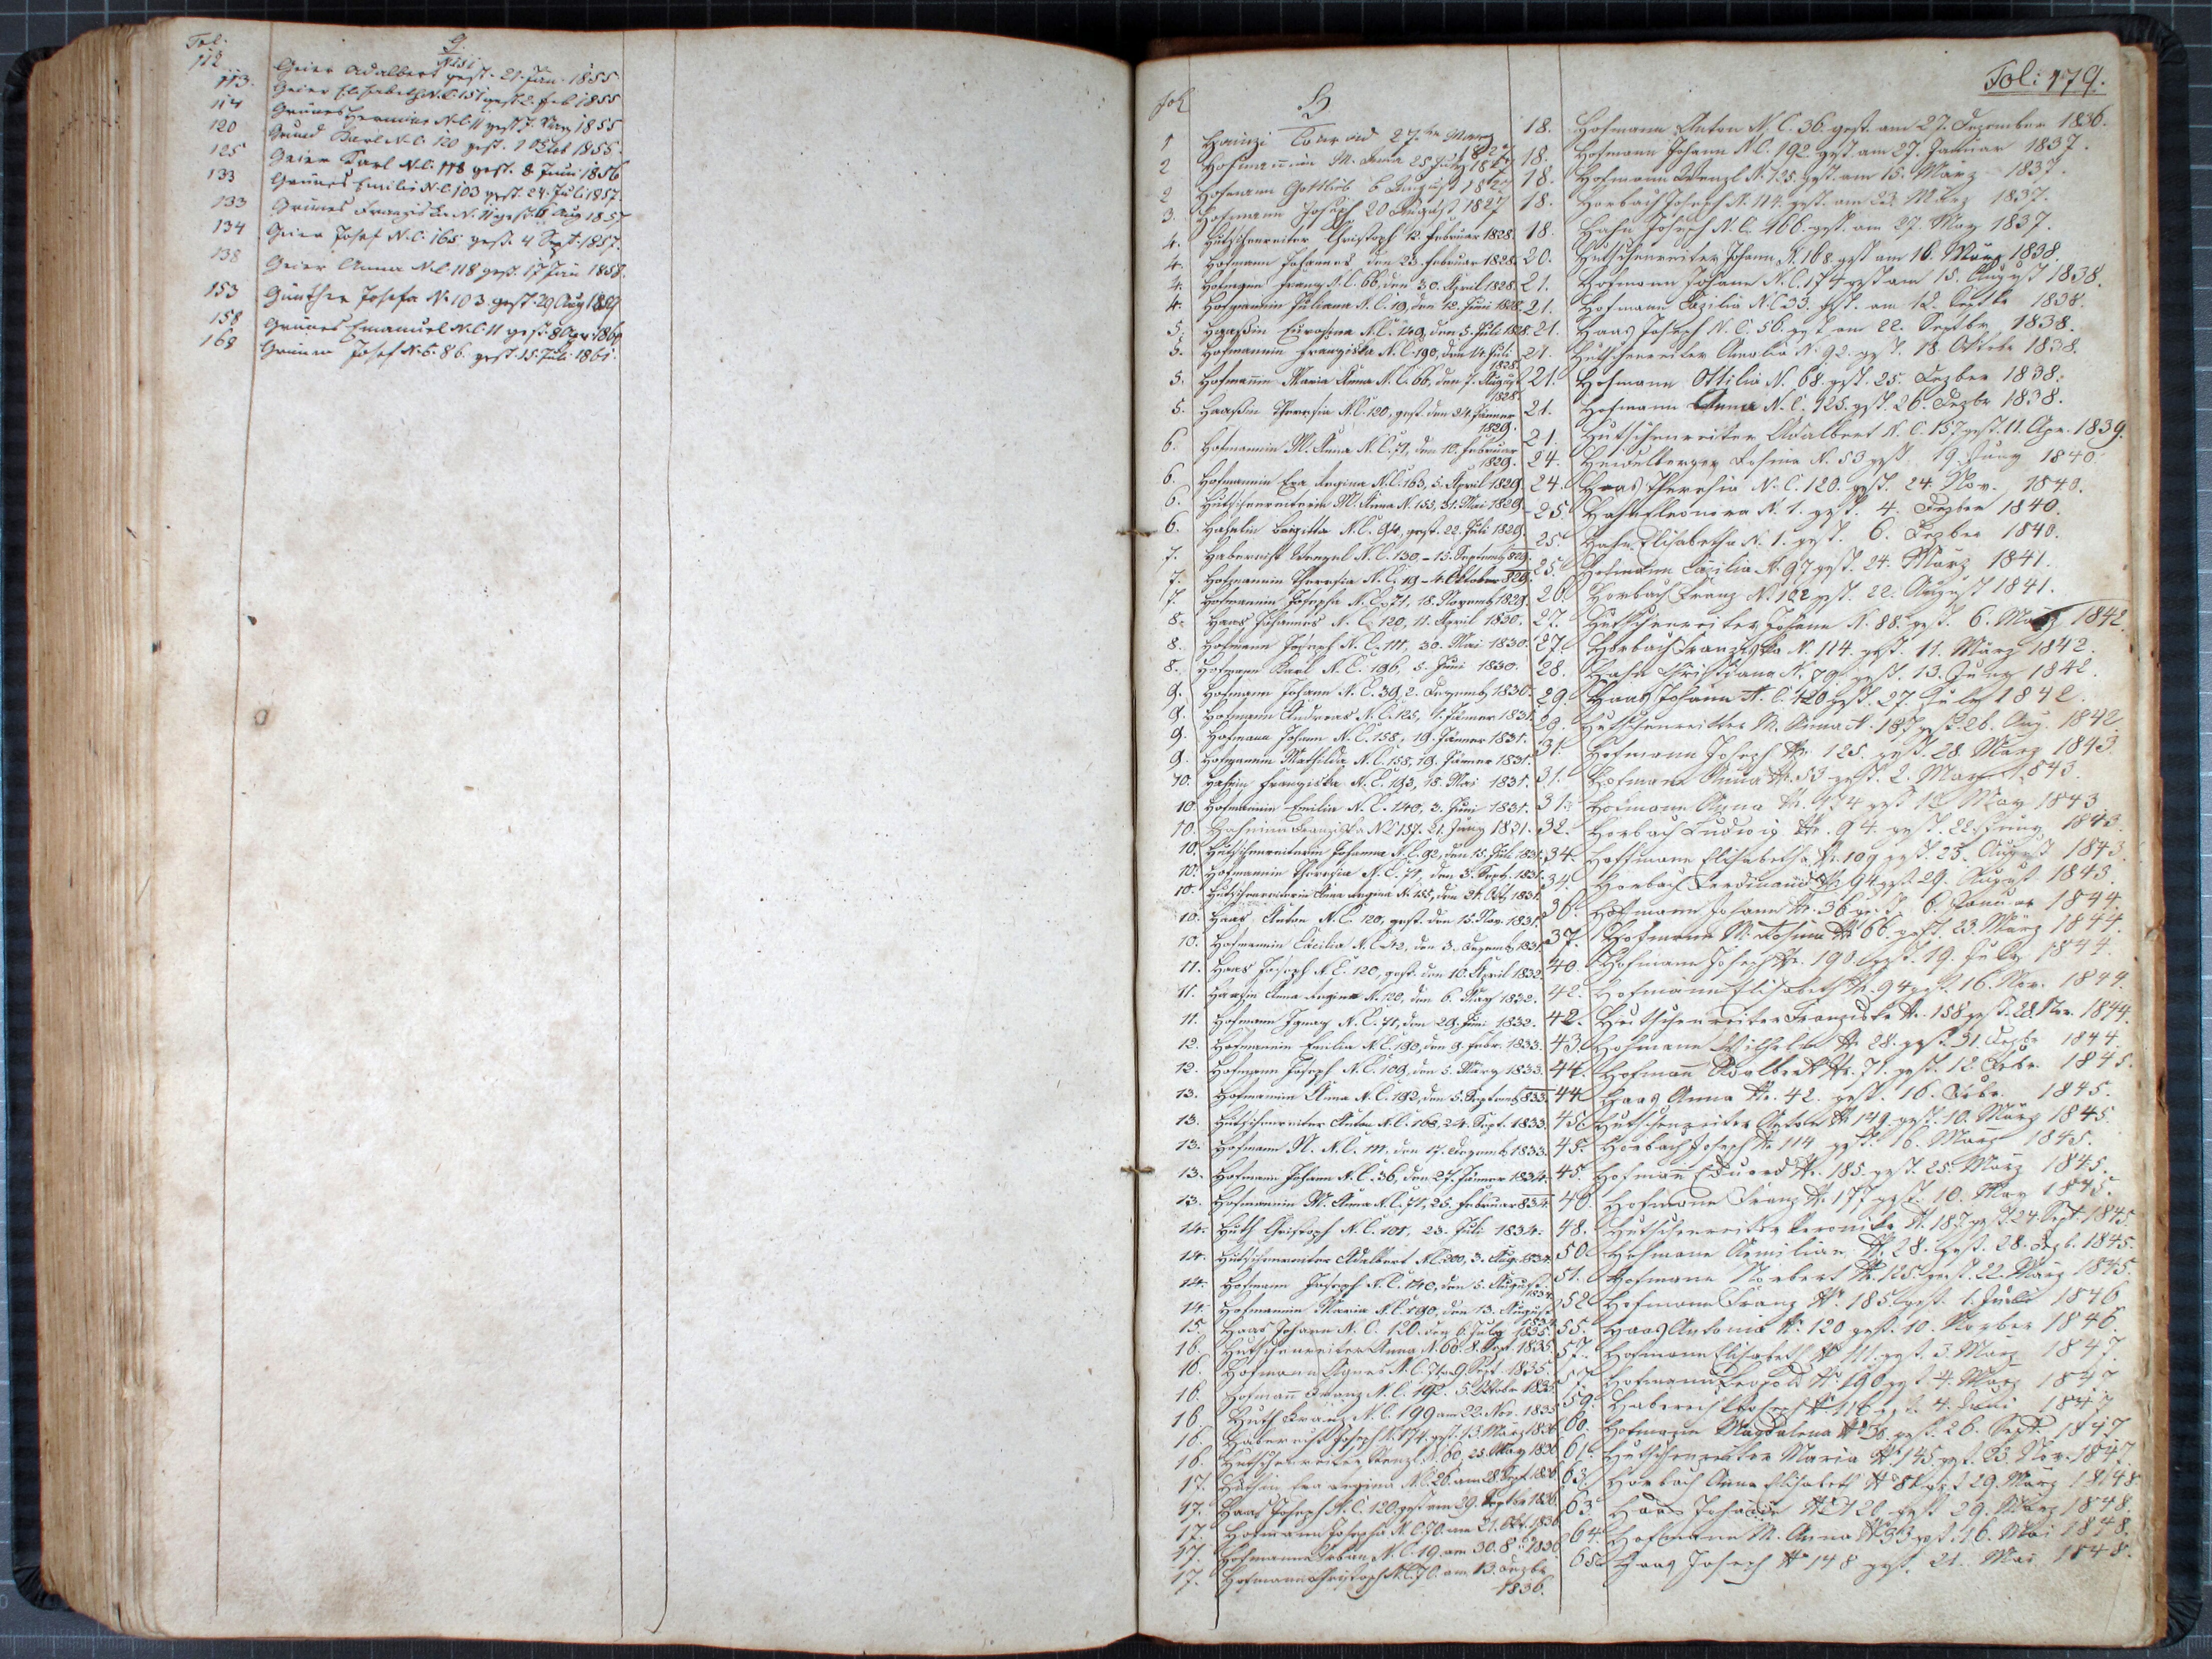 Fol:
G.
112 Geier Adalbert N 151 gest. 21. Jän. 1855
113. Geier Elisabeth N.C. 151 gest 2. Feb 1855
114 Grünes Hermine N.C. 11 gest 7. März 1855
120 Grund Karl N.C. 120 gest. 1 Oktob 1855.
125 Geier Karl N.C. 118 gest. 8 Juni 1856
133 Grünes Emilie N.C. 103 gest. 24. Juli 1857.
133 Grünes Franziska N. 11 gest. 6 Aug 1857
134 Geier Josef N.C. 165 gest. 4 Sept. 1857.
138 Geier Anna N.C. 118 gest. 17 Jän 1858.
153 Günther Josefa N. 103. gest. 29 Aug
158 Grünes Emanuel N.C. 11 gest. 1860
169 Josef N.C. 86. gest. 15. Juli 1861.
Fol: 179.
Fol H
1 27ten März 1827
2 Hofmannin M. Anna 25 July 1827
2 Hofmann Gottlieb 6 August 1827
3. Hofmann Joseph 20 August 1827
4. Hutschenreiter Christoph 12. Februar 1828.
4. Hofmann Johannes den 23. Februar 1828.
4. Hofmann Franz N.C. 66, den 30. April 1828.
4. Hofmannin Juliana N.C. 19, den 12. Juni 1828.
5. Haaßin Eurosina N.C. 149, den 5. Juli 1828.
5. Hofmannin Franziska N.C. 190, den 14. Juli
1828.
5. Hofmannin Maria Anna N.C. 66, den 7. August
1828.
5. Haaßin Theresia N.C. 120, gest. den 24. Jänner
1829.
6. Hofmannin M. Anna N.C. 71, den 10. Februar
1829.
6. Hofmannin Eva Regina N.C. 163, 5. April 1829.
6. Hutschenreiterin M. Anna N. 153, 31. Mai 1829.
6. Brigitta N.C. 94, gest. 22. Juli 1829.
7. Wenzel N.C. 130, - 15. Septemb 829.
7. Hofmannin Theresia N.C. 19 - 4. Oktober 829.
7. Hofmannin Josepha N.C. 71, 18. Novemb 1829.
8. Haas Johannes N.C. 120, 11. April 1830.
8. Hofmann Joseph N.C. 111, 30. Mai 1830.
8. Hofmann Karl N.C. 196, 5. Juni 1830.
9. Hofmann Johann N.C. 39, 2. Dezemb 1830.
9. Hofmann Andreas N.C. 125, 1. Jänner 1831.
9. Hofmann Johann N.C. 158, 19. Jänner 1831.
9. Hofmannin Mathilda N.C. 158, 19. Jänner 1831.
10. Franziska N.C. 193, 18. Mai 1831.
10. Hofmannin Emilia N.C. 140, 3. Juni 1831.
10. Franziska NC 157. 21. Juny 1831.
10. Hutschenreiterin Johanna N.C. 92, den 15. Juli 1831.
10. Hofmannin Theresia N.C. 71, den 3. Sept. 1831.
10. Hutschenreiterin Anna Regina N. 155, den 21. Okt. 1831.
10. Haas Anton N.C. 120, gest. den 15. Nov. 1831.
10. Hofmannin Cäcilia N.C. 42, den 3. Dezemb 1831.
11. Haas Joseph N.C. 120, gest. den 10. April 1832.
11. Haaßin Anna Regina N. 120, den 6. May 1832.
11. Hofmann Ignaz N.C. 71, den 29. Juni 1832.
12. Hofmannin Emilia N.C. 190, den 9. Febr. 1833.
12. Hofmann Joseph N.C. 109, den 5. März 1833.
13. Hofmannin Anna N.C. 192, den 5. Septemb 833.
13. Hutschenreiter Anton N.C. 168, 24. Sept. 1833.
13. Hofmann N. N.C. 111, den 17. Dezemb 1833.
13. Hofmann Johann N.C. 36, den 27. Jänner 1834.
13. Hofmannin M. Anna N.C. 71, 25. Februar 834.
14. Huth Christoph N.C. 101, 23. Juli 1834.
14. Hutschenreiter Adalbert N.C. 200, 3. Aug. 1834.
14. Hofmann Joseph N.C. 140, den 5. August
1834.
14. Hofmannin Maria N.C. 190, den 13. August
1834.
15. Haas Johann N.C. 120. den 6. July 1835.
16. Hutschenreiter Anna N. 60. 8. Sept. 1835.
16. Hofmann Agnes N.C. 71. 9. Sept. 1835.
16. Hofmann Franz N.C. 192. 5. Oktobr 1835.
16. Huth Franz N.C. 199 am 22. Nov. 1835.
16. Joseph N. 171. gest. 13. März 1836
16. Hutschenreiter Wenzl N. 60, 23. May 1836
17. Huthin Eva Regina N.C. 26. am 28. Sept. 1836.
17. Haas Joseph N.C. 120 gest am 29. Septbr 1836.
17. Hofmann Josepha N.C. 70. am 21. Okt. 1836
17. Hofmann Urban N.C. 19. am 30. 8br 1836
17. Hofmann Christoph N.C. 70. am 13. Dezbr
1836.
18. Hofmann Anton N.C. 36. gest. am 27. Dezember 1836.
18. Hofmann Johann N.C. 192. gest. am 27. Januar 1837.
18. Hofmann Wenzl N. 125. gest. am 15. März 1837.
18. Horbach Joseph N. 114. gest. am 23. März 1837.
18. Hahn Joseph N.C. 166. gest. am 27. May 1837.
20. Hutschenreiter Johann N. 168. gest am 16. März 1838.
21. Hofmann Johann N.C. 174 gest am 15. August 1838.
21. Hofmann Cäzilia N.C. 33. gest. am 12. Septbr 1838.
21. Haas Joseph N.C. 56. gest am 22. Septbr 1838.
21. Hutschenreiter Amalia N. 92. gest. 18. Oktobr 1838.
21. Hofmann Ottilia N. 68. gest. 25. Dezber 1838.
21. Hofmann Anna N.C. 125. gest. 26. Dezbr 1838.
21. Hutschenreiter Adalbert N.C. 157 gest. 11. Apr. 1839.
24. Heidelberger Rosina N. 53 gest. 19. Juny 1840.
24. Haas Theresia N.C. 120. gest. 24. Nov. 1840.
25. Hahn Eleonora N. 1. gest. 4. Dezber 1840.
25. Hahn Elisabetha N. 1. gest. 6. Dezber 1840.
25. Hofmann Cäcilia N. 97 gest. 24. März 1841.
26. Horbach Franz N. 192 gest. 22. August 1841.
27. Hutschenreiter Johann N. 88. gest. 6. März 1842.
27. Horbach Franziska N. 114. gest. 11. März 1842.
28. Hahn Christiana N. 79 gest. 13. Juny 1842.
29. Haas Johann N.C. 120 gest. 27. July 1842.
29. Hutschenreitter M. Anna N. 187 gest 26. Aug. 1842.
31. Hofmann Joseph N. 125. gest. 28. März 1843.
31. Hofmann Anna N. 53 gest. 2. May 1843.
31. Hofmann Anna N. 174 gest 12. May 1843
32. Horbach Ludwig N. 94. gest. 22. Juny 1843.
34. Hoffmann Elisabetha N. 109 gest. 23. August 1843.
34. Horbach Ferdinand N. 94 gest. 29. August 1843.
36. Hofmann Johann N. 36 gest. 6. Januar 1844.
37. Hofmann M. Rosina N 66. gest. 23. März 1844.
40. Hofmann Joseph N. 190 gest. 19. July 1844.
42. Hofmann Elisabeth N. 94 gest. 16. Nov. 1844.
42. Hutschenreiter Franziska N. 158 gest. 28. Nov. 1844.
43. Hofmann Wilhelm N. 28. gest. 31. Dezbr 1844.
44. Hofmann Adalbert N. 71. gest. 12. Febr. 1845.
44 Haas Anna N. 42. gest. 16. Febr. 1845.
45. Hutschenreiter Anton N 149. gest. 10. März 1845.
45. Horbach Joseph N. 114 gest. 16. März 1845.
45. Hofmann Eduard N. 185. gest. 25. März 1845.
46. Hofmann Franz N. 177 gest. 10. May 1845.
48. Hutschenreitter Veronika N. 187 gest. 24. Sept. 1845.
50. Hofmann N. 28. gest. 28. Dezb. 1845.
51. Hofmann Norbert N. 125. gest. 22. März 1845.
52. Hofmann Franz N. 185. gest. 1. Juli 1846
55. Haas Antonia N. 120 gest. 10. Novber 1846.
57. Hofmann Elisabeth N 111. gest. 3. März 1847.
57. Hofmann Leopold N. 190 gest. 4. März 1847
59. Joseph N. 116 gest. 4. Juni 1847
60. Hofmann Magdalena N 36. gest. 26. Sept. 1847
61. Hutschenreiter Maria N. 145. gest. 23. Nov. 1847.
63. Horbach Anna Elisabeth N gest 29. März 1848
63 Haas N 120 gest 29. März 1848.
64. Hofmann M. Anna N 33 gest. 16. Mai 1848.
65. Haas Joseph N 148 gest. 21. Mai 1848.